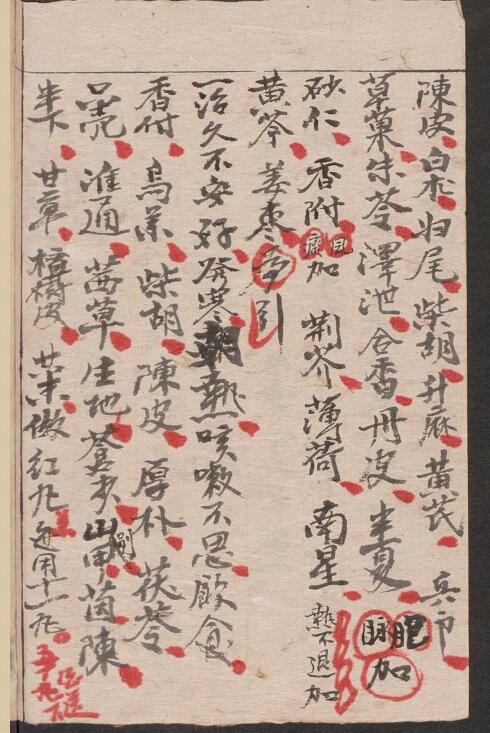 陳皮 白朮 归尾 柴胡 升麻 黃芪 兵郎
草菓 朱苓 澤泄 合香 丹皮 半夏 肥脉加
砂仁 香附 見痰加 荆芥 薄荷 南星 熱不退加
黄芩 姜枣 引
一治久不安好 發寒潮熱咳嗽不思飲食
香付 烏藥 柴胡 陳皮 厚朴 茯苓
淮通 茜草 生地 山甲 茵陳
半下 甘草 皮 葉做紅丸 每用十一丸